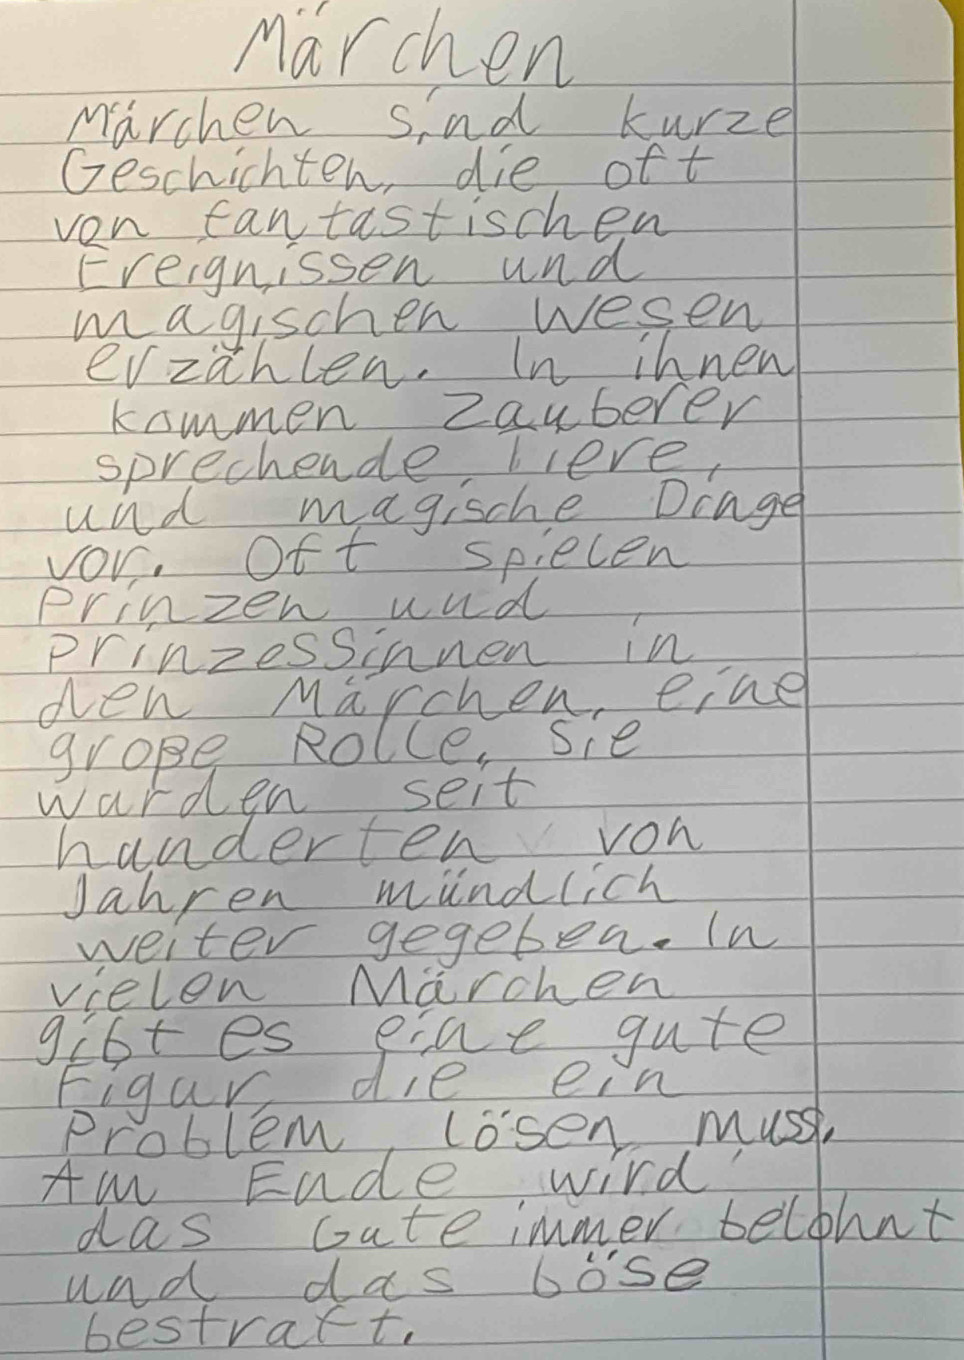 Märchen
Märchen sind kurze
Geschichten, die oft
von fantastischen
Ereignissen und
magischen Wesen
erzählen. In ihnen
kommen Zauberer
sprechende Tiere,
und magische Dinge
vor. Oft spielen
Prinzen und
Prinzessinnen in
den Märchen, eine
große Rolle, Sie
warden seit
hunderten von
Jahren mündlich
weiter gegeben. In
vielen Märchen
gibt es eine gute
Figur, die ein
Problem lösen muss.
Am Ende wird
das Gute immer belohnt
und das böse
bestraft.